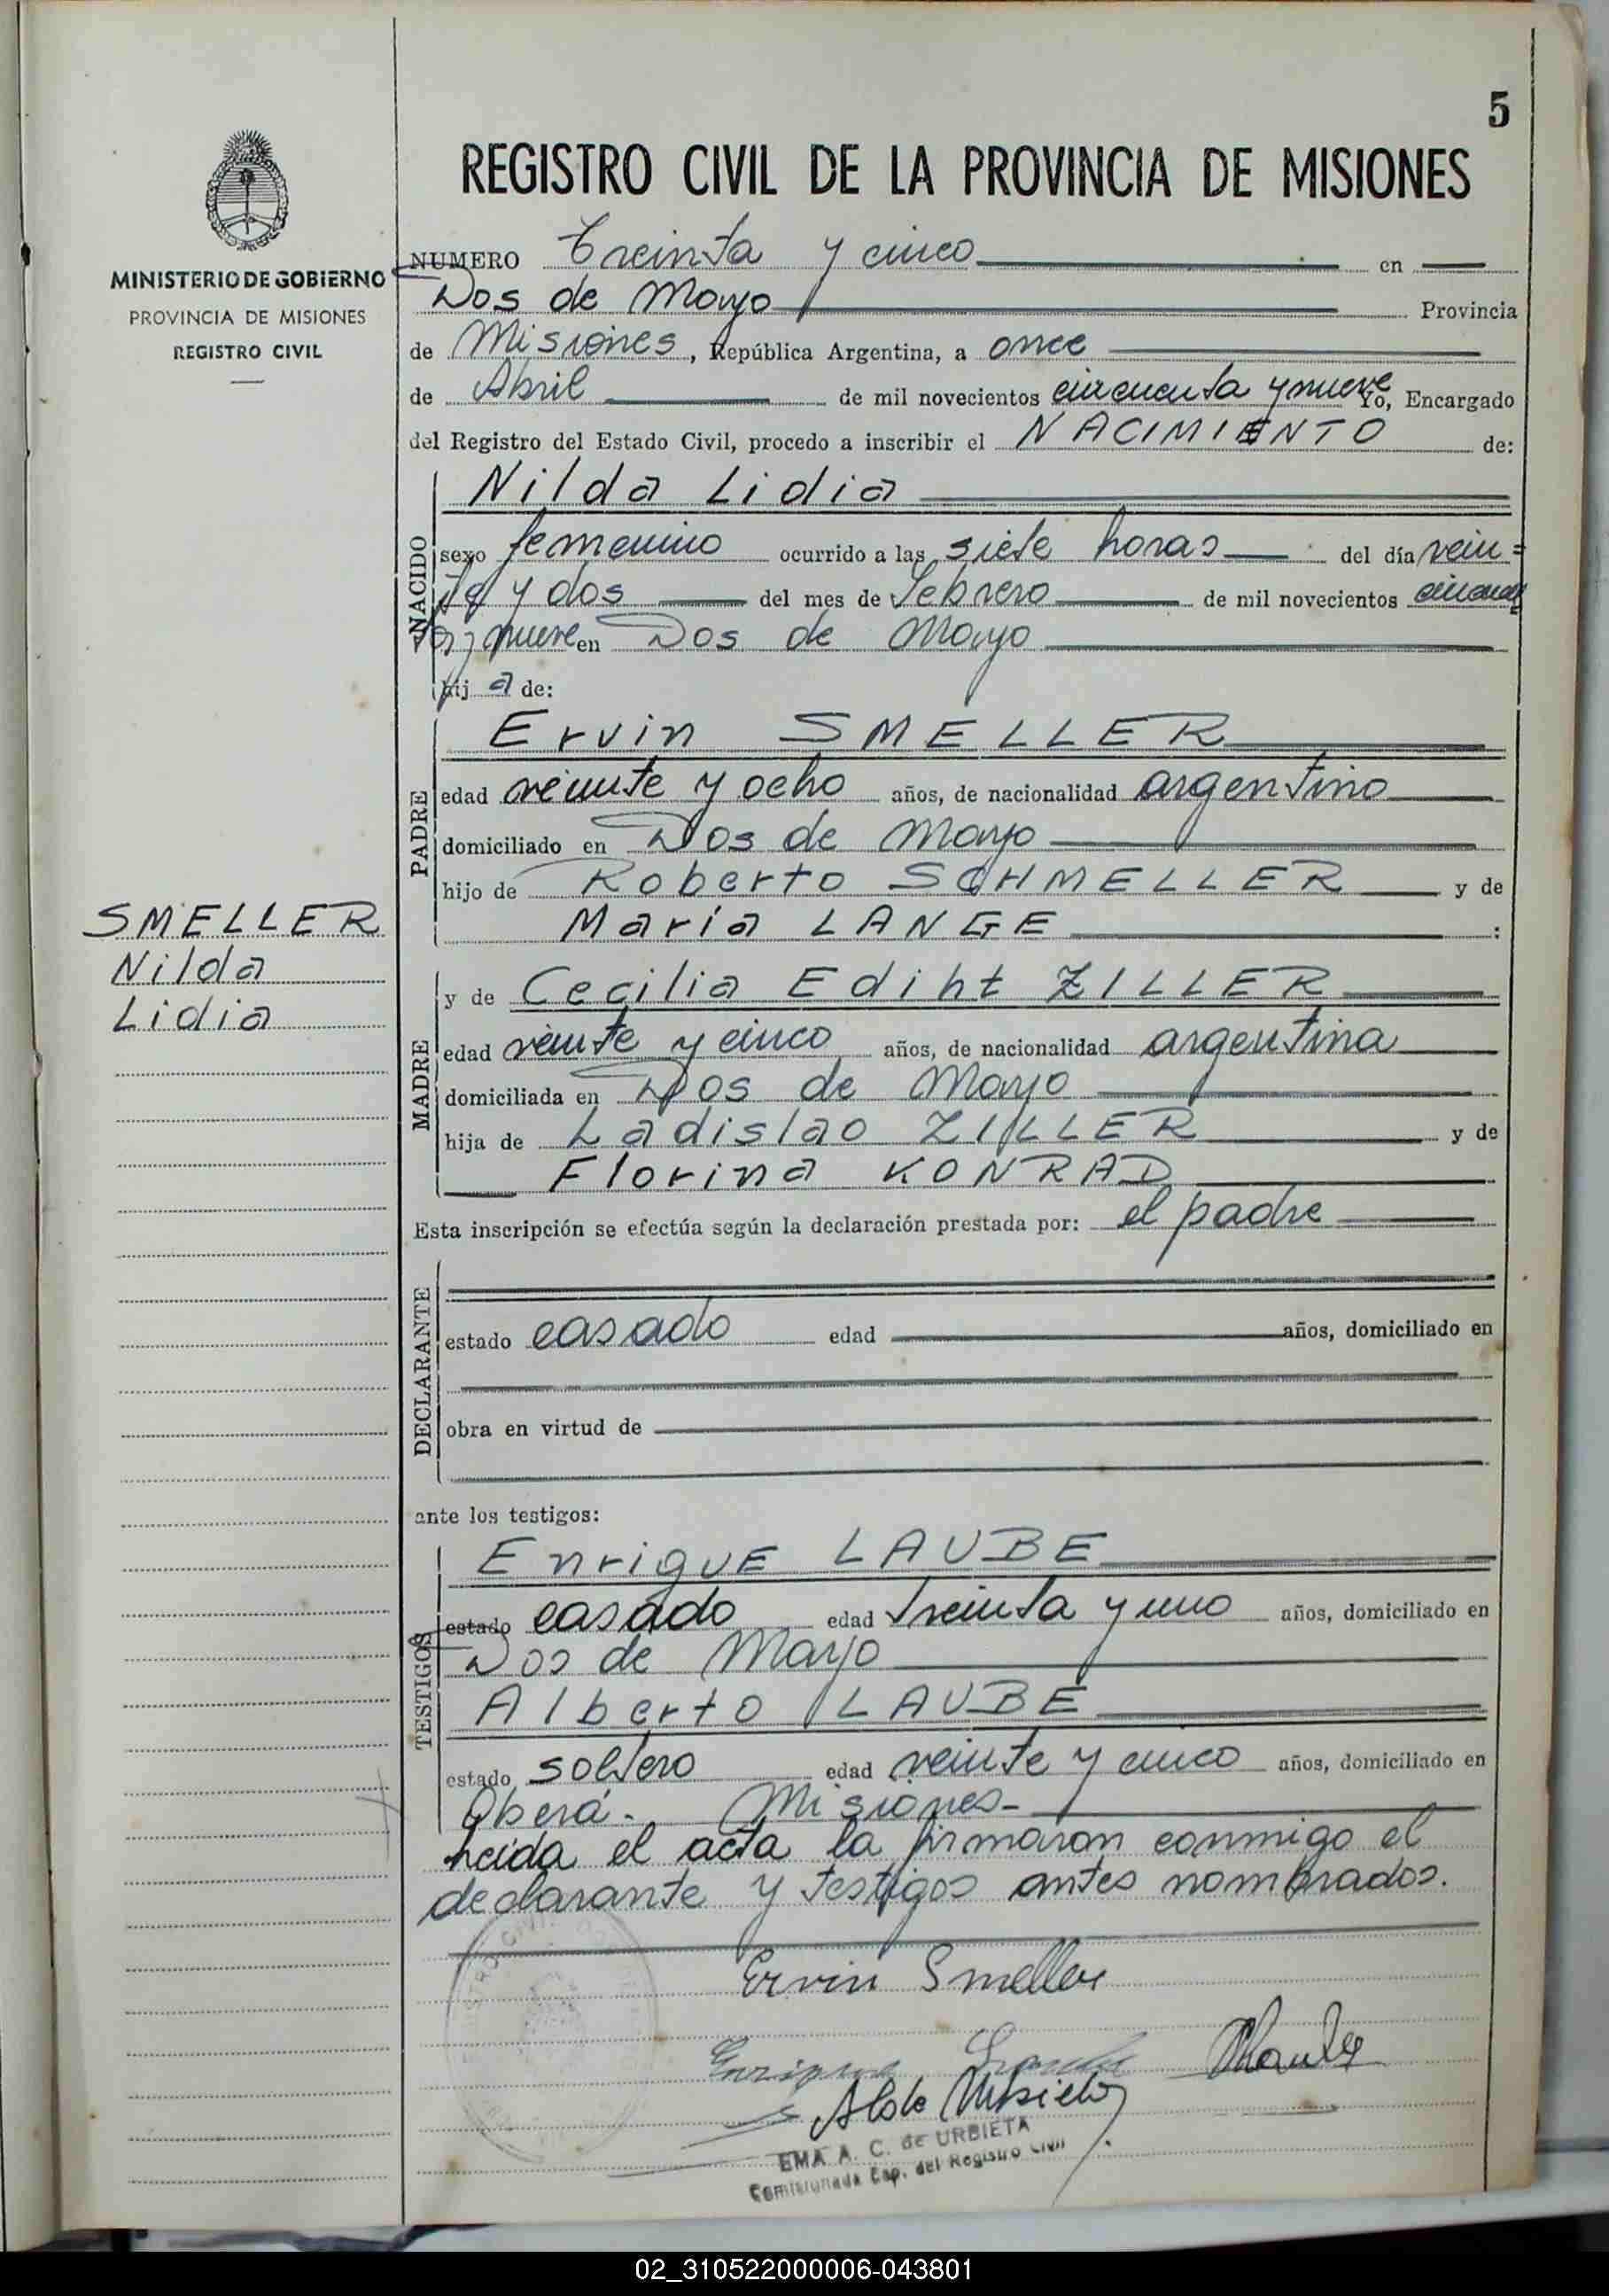 5
REGISTRO CIVIL DE LA PROVINCIA DE MISIONES
MINISTERIO DE GOBIERNO
PROVINCIA DE MISIONES
REGISTRO CIVIL
NUMERO Treinta y cinco en
Dos de Mayo Provincia
de Misiones, República Argentina, a once
de Abril de mil novecientos cincuenta y nueve Yo, Encargado
del Registro del Estado Civil, procedo a inscribir el NACIMIENTO de:
NACIDO
Nilda Lidia
sexo femenino ocurrido a las siete horas del día vein=
te y dos del mes de Febrero de mil novecientos cincuen
ta y nueve en Dos de Mayo
hij a de:
PADRE
Ervin SMELLER
edad veinte y ocho años, de nacionalidad argentino
domiciliado en Dos de Mayo
hijo de Roberto SCHMELLER y de
Maria LANGE :
SMELLER
Nilda
Lidia
MADRE
y de Cecilia Ediht ZILLER
edad veinte y cinco años, de nacionalidad argentina
domiciliada en Dos de Mayo
hija de Ladislao ZILLER y de
Florina KONRAD
Esta inscripción se efectúa según la declaración prestada por: el padre
DECLARANTE
estado casado edad años, domiciliado en
obra en virtud de
ante los testigos:
TESTIGOS
Enrique LAUBE
estado casado edad treinta y uno años, domiciliado en
Dos de Mayo
Alberto LAUBE
estado soltero edad veinte y cinco años, domiciliado en
Oberá - Misiones -
Leida el acta la firmaron conmigo el
declarante y testigos antes nombrados.
Ervin Smeller
Enrique Laube
EMA A. C. de URBIETA
Comisionada Cap. del Registro Civil
02_310522000006-043801